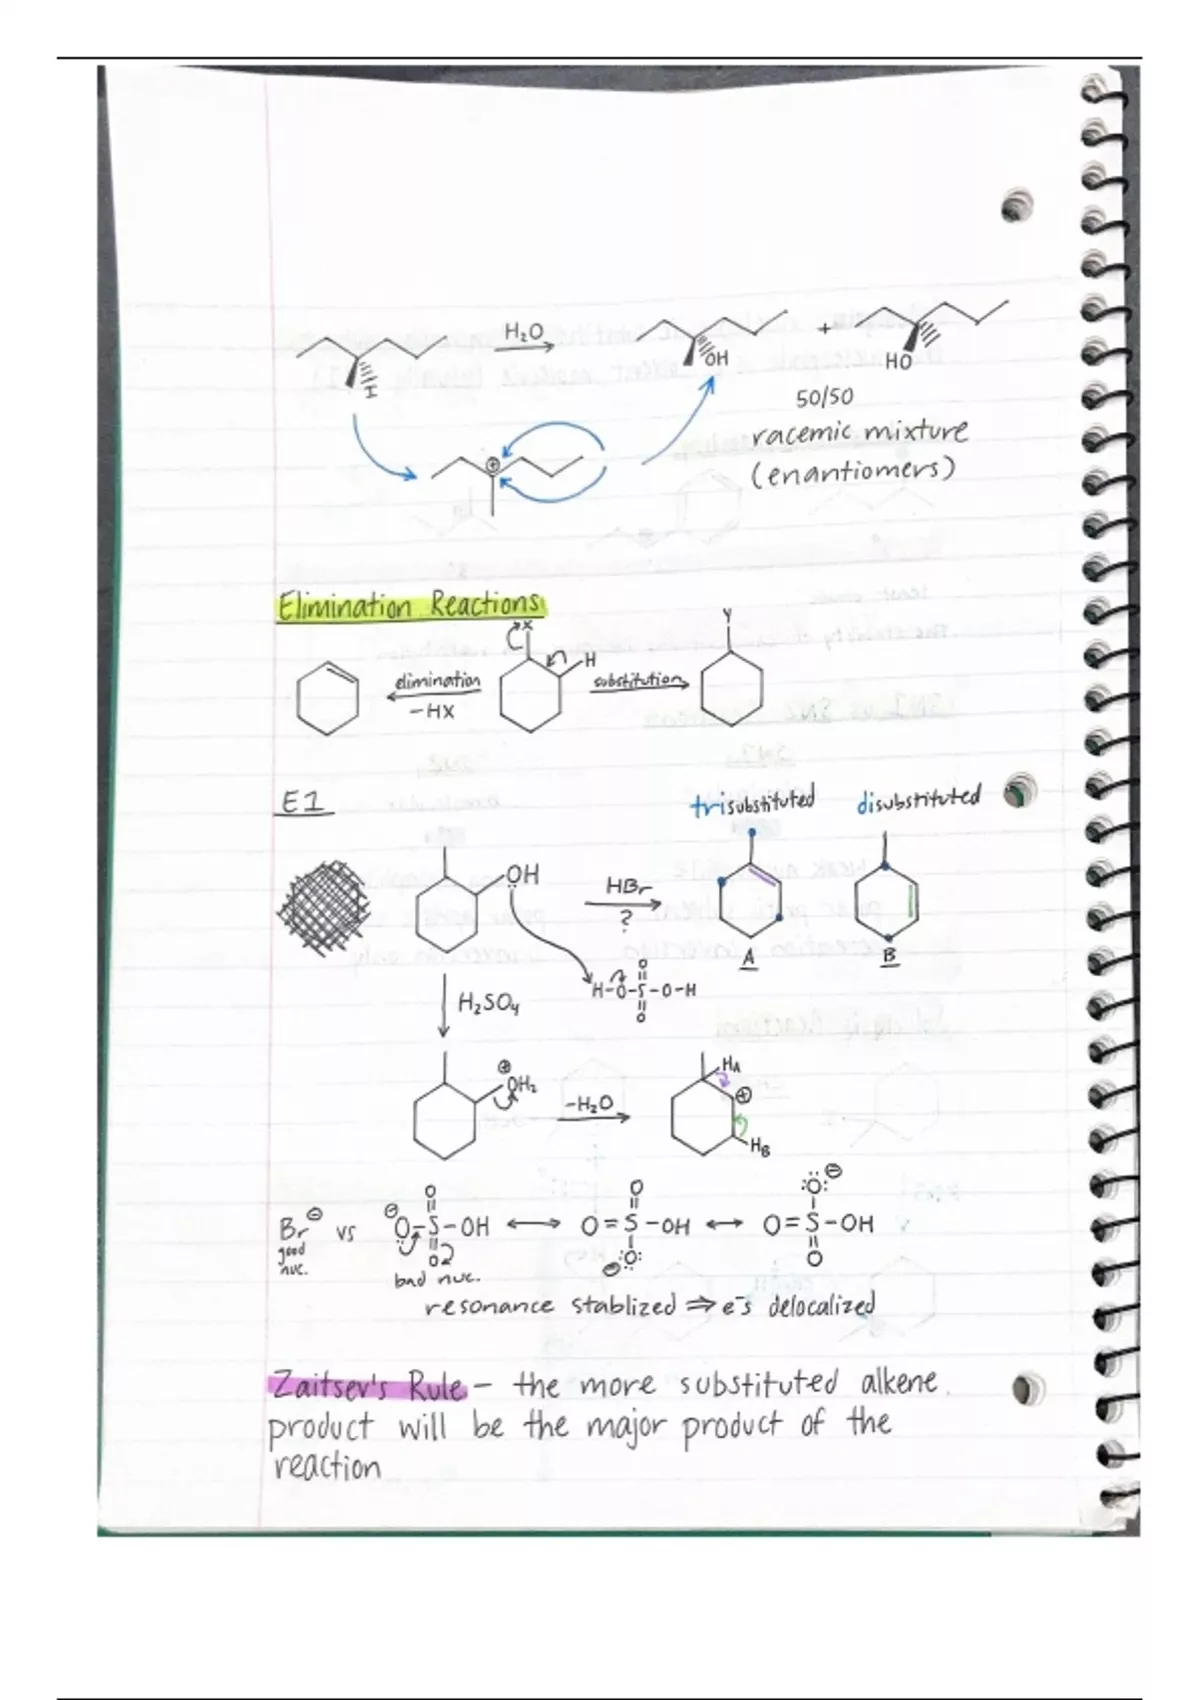 H₂O
I
OH
+
HO
50/50
racemic mixture
(enantiomers)
⊕
Elimination Reactions
X
H
Y
elimination
-HX
substitution
E1
trisubstituted
disubstituted
OH
HBr
?
A
B
H-O-S-O-H
O
O
H₂SO₄
⊕
OH₂
-H₂O
HA
⊕
HB
Br⊖ vs ⊖O-S-OH ⟷ O=S-OH ⟷ O=S-OH
O
O
O
O⊖
O⊖
O
good
nuc.
bad nuc.
resonance stablized ⇒ e⁻s delocalized
Zaitsev's Rule - the more substituted alkene
product will be the major product of the
reaction